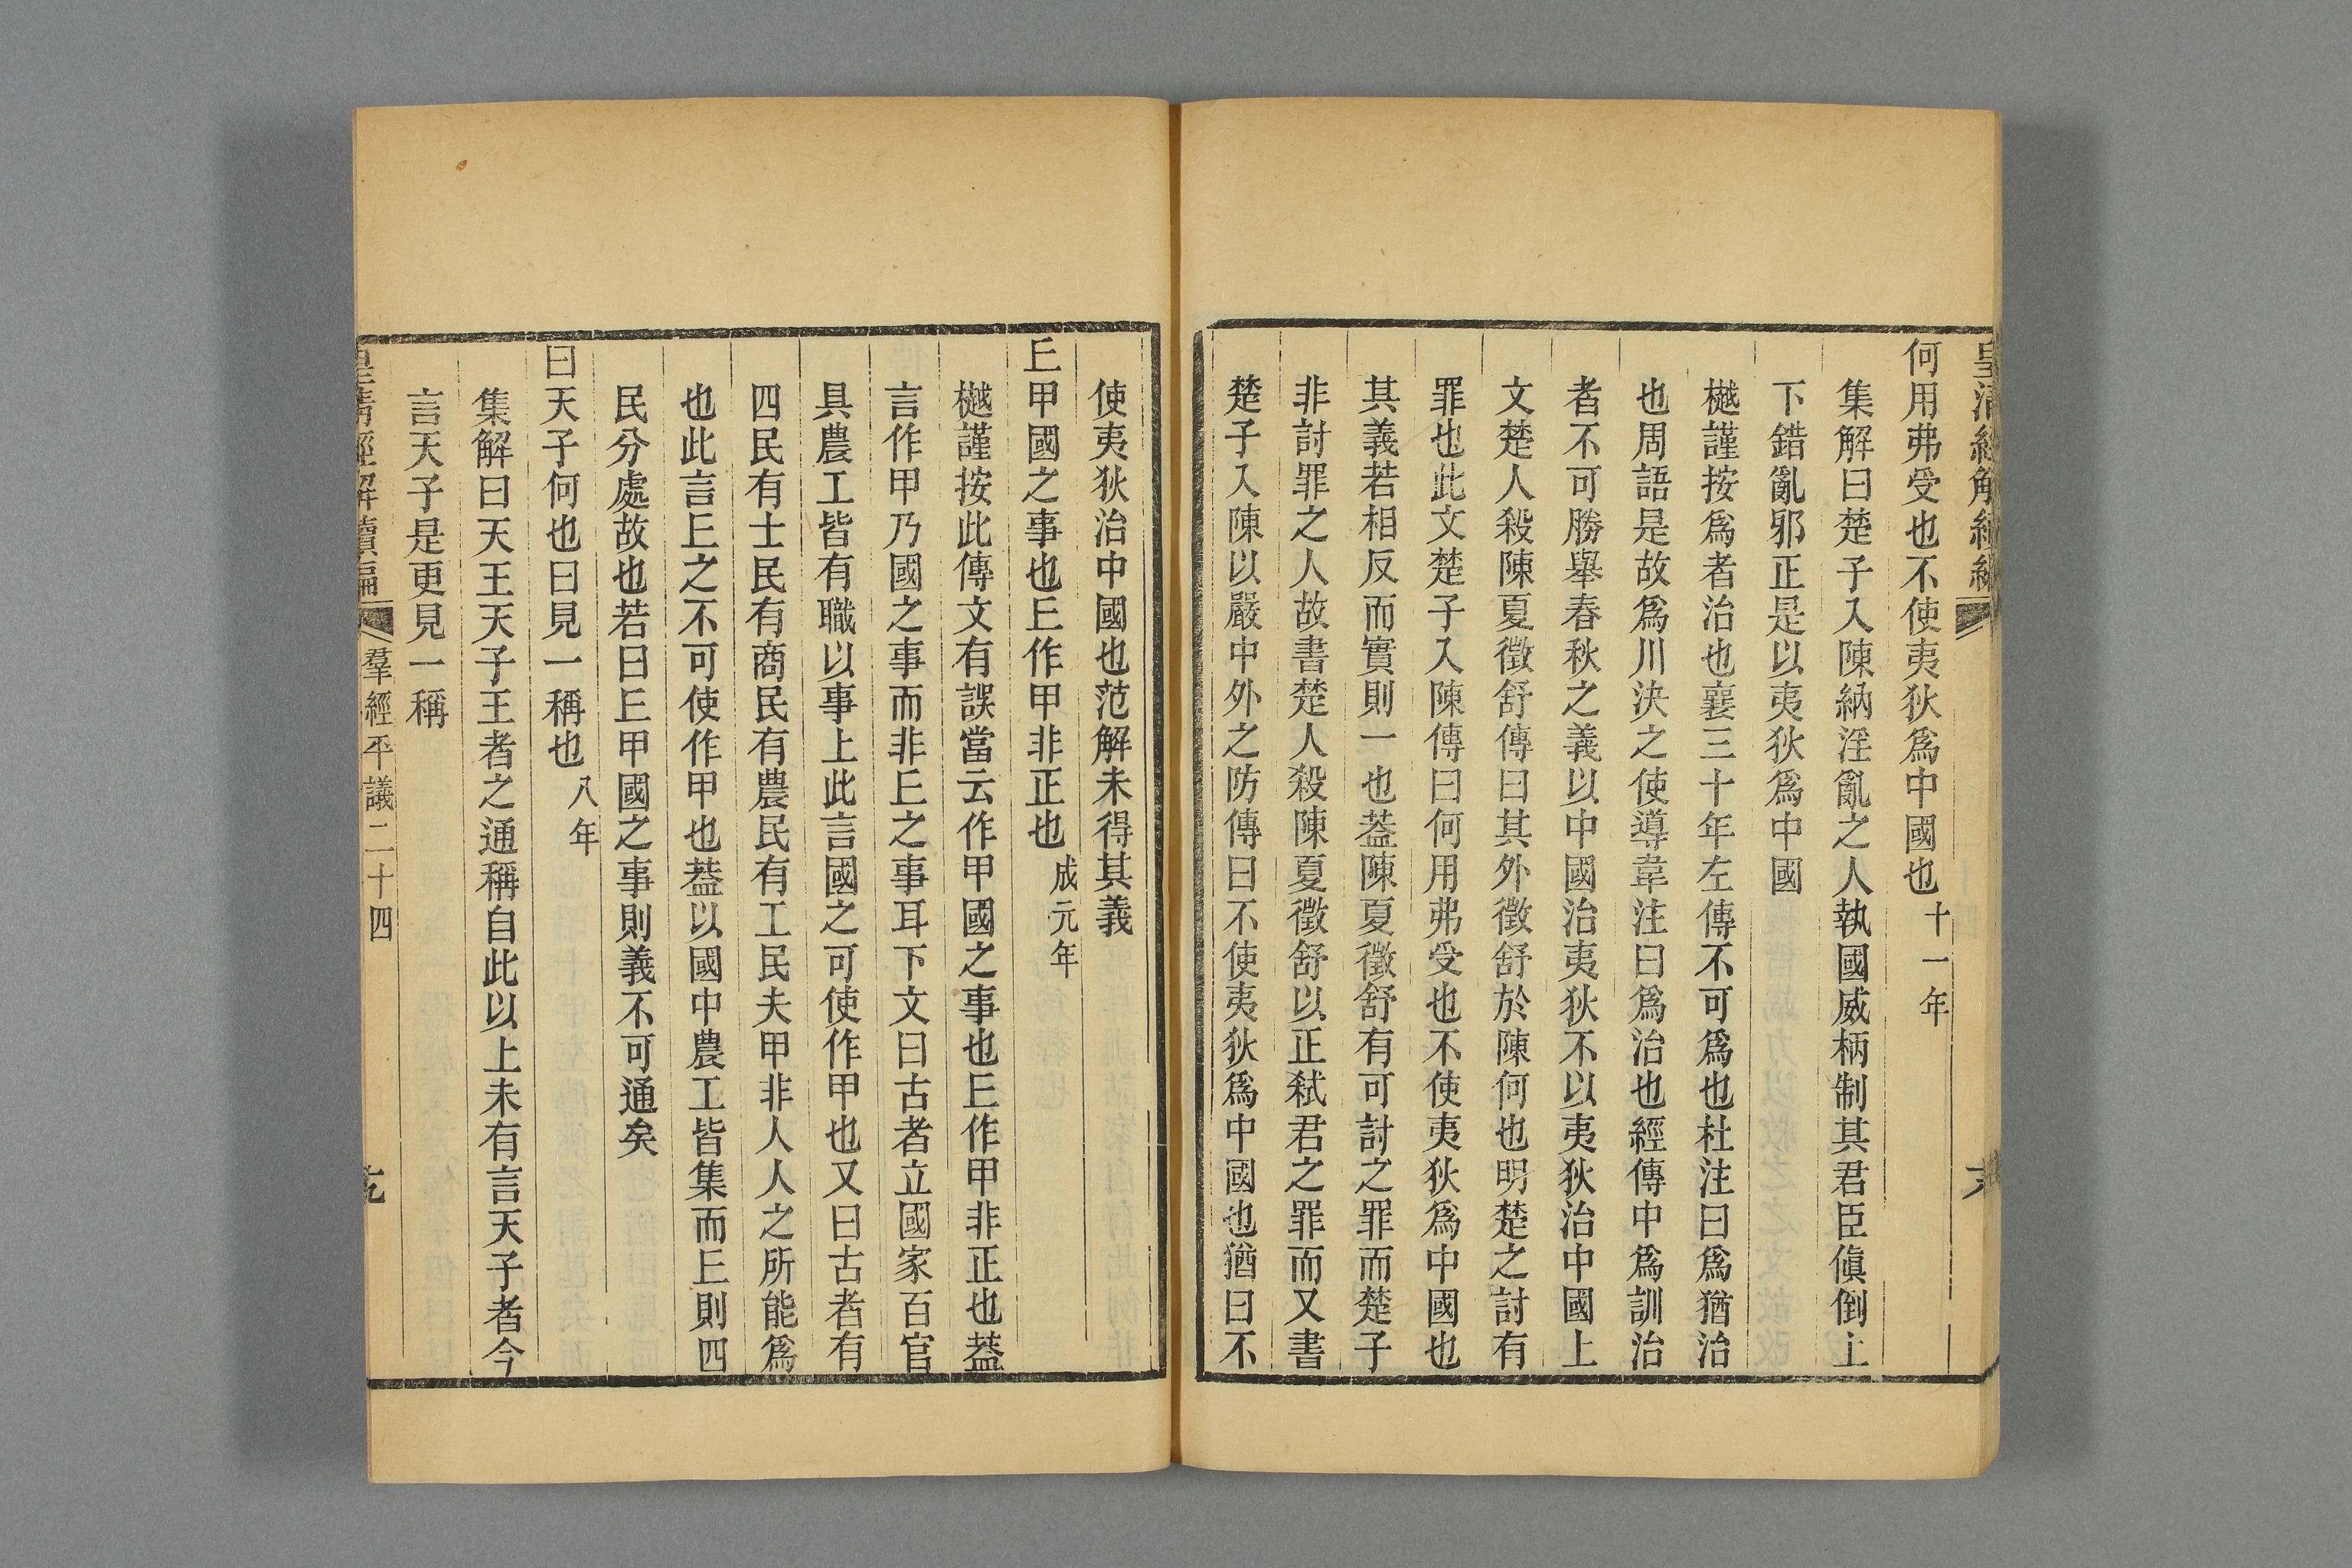 皇清經解續編
何用弗受也不使夷狄爲中國也十一年
集解曰楚子入陳納淫亂之人執國威柄制其君臣傎倒上
下錯亂邪正是以夷狄爲中國
樾謹按爲者治也襄三十年左傳不可爲也杜注曰爲猶治
也周語是故爲川決之使導韋注曰爲治也經傳中爲訓治
者不可勝舉春秋之義以中國治夷狄不以夷狄治中國上
文楚人殺陳夏徵舒傳曰其外徵舒於陳何也明楚之討有
罪也此文楚子入陳傳曰何用弗受也不使夷狄爲中國也
其義若相反而實則一也葢陳夏徵舒有可討之罪而楚子
非討罪之人故書楚人殺陳夏徵舒以正弒君之罪而又書
楚子入陳以嚴中外之防傳曰不使夷狄爲中國也猶曰不
使夷狄治中國也范解未得其義
𠀉甲國之事也𠀉作甲非正也成元年
樾謹按此傳文有誤當云作甲國之事也𠀉作甲非正也葢
言作甲乃國之事而非𠀉之事耳下文曰古者立國家百官
具農工皆有職以事上此言國之可使作甲也又曰古者有
四民有士民有商民有農民有工民夫甲非人人之所能爲
也此言𠀉之不可使作甲也葢以國中農工皆集而𠀉則四
民分處故也若曰𠀉甲國之事則義不可通矣
曰天子何也曰見一稱也八年
集解曰天王天子王者之通稱自此以上未有言天子者今
言天子是更見一稱
皇清經解續編
羣經平議二十四